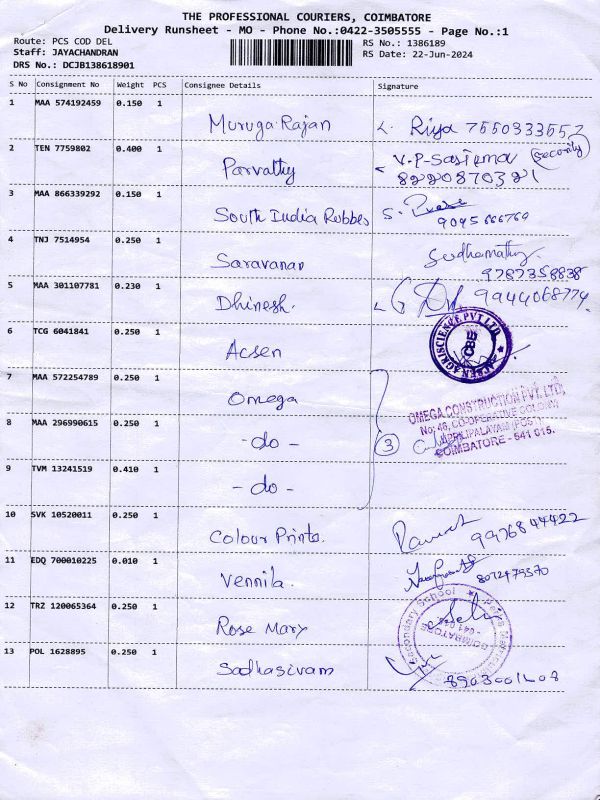 THE PROFESSIONAL COURIERS, COIMBATORE
Delivery Runsheet - MO - Phone No.:0422-3505555 - Page No.:1
Route: PCS COD DEL
Staff: JAYACHANDRAN
DRS No.: DCJB138618901
RS No.: 1386189
RS Date: 22-Jun-2024
S No Consignment No Weight PCS Consignee Details Signature
1 MAA 574192459 0.150 1 Muruga Rajan Riya 7550333557
2 TEN 7759802 0.400 1 Parvathy V.P-Sasirema (Security)
8220870321
3 MAA 866339292 0.150 1 South India Rubbes S.
9095666760
4 TNJ 7514954 0.250 1 Saravanan Sudhamathy
9787358838
5 MAA 301107781 0.230 1 Dhinesh. 9944068774
6 TCG 6041841 0.250 1 Acsen
AGRISCIENCE PVT LTD
CBE
7 MAA 572254789 0.250 1 Omega
OMEGA CONSTRUCTION PVT. LTD,
No: 46, CO-OPERATIVE COLONY
UPPILIPALAYAM (POST)
COIMBATORE - 641 015.
8 MAA 296990615 0.250 1 -do- 3
9 TVM 13241519 0.410 1 -do-
10 SVK 10520011 0.250 1 Colour Prints. 9976844422
11 EDQ 700010225 0.010 1 Vennila. 8072479370
12 TRZ 120065364 0.250 1 Rose Mary
Secondary School
COIMBATORE
- 641 015
13 POL 1628895 0.250 1 Sadhasivam